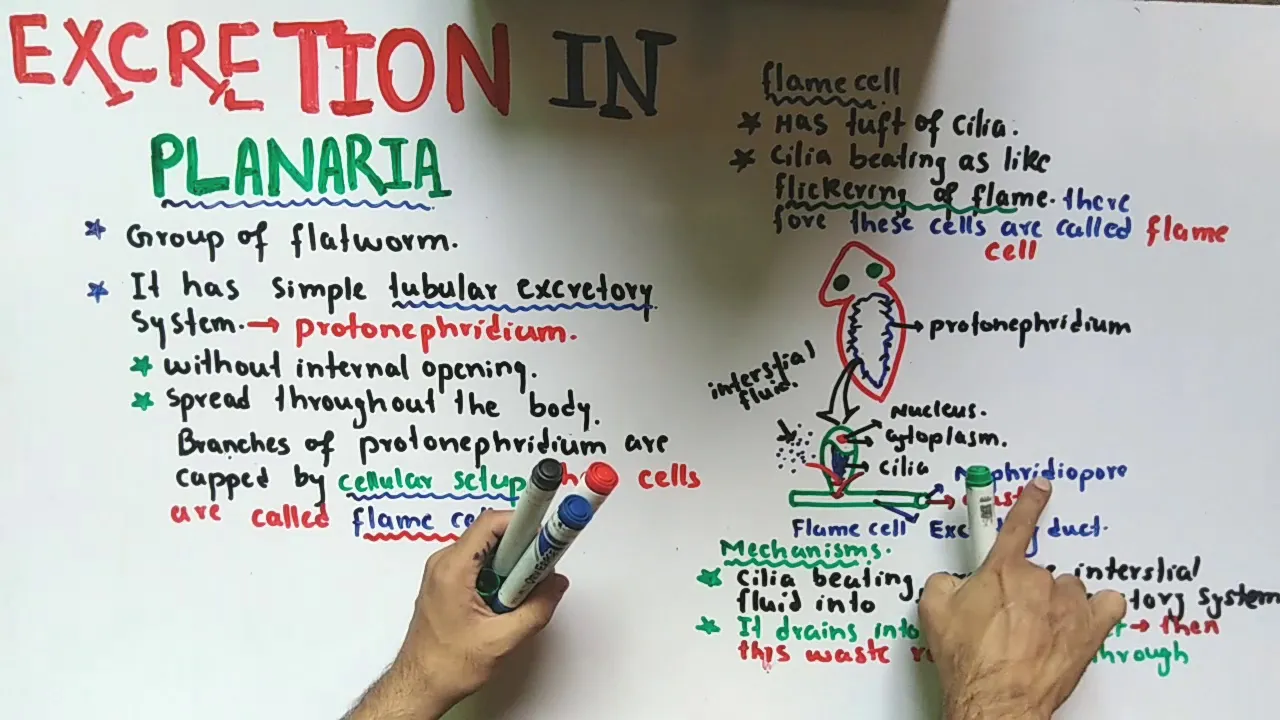 EXCRETION IN
PLANARIA
Group of flatworm.
It has simple tubular excretory
system. → protonephridium.
without internal opening.
Spread throughout the body.
Branches of protonephridium are
capped by cellular setup cells
are called flame
flame cell
Has tuft of cilia.
Cilia beating as like
flickering of flame. there
fore these cells are called flame
cell
protonephridium
interstial
fluid.
Nucleus.
cytoplasm.
cilia
Flame cell duct.
Mechanisms.
Cilia beating interstial
fluid into system
It drains into → then
this waste through